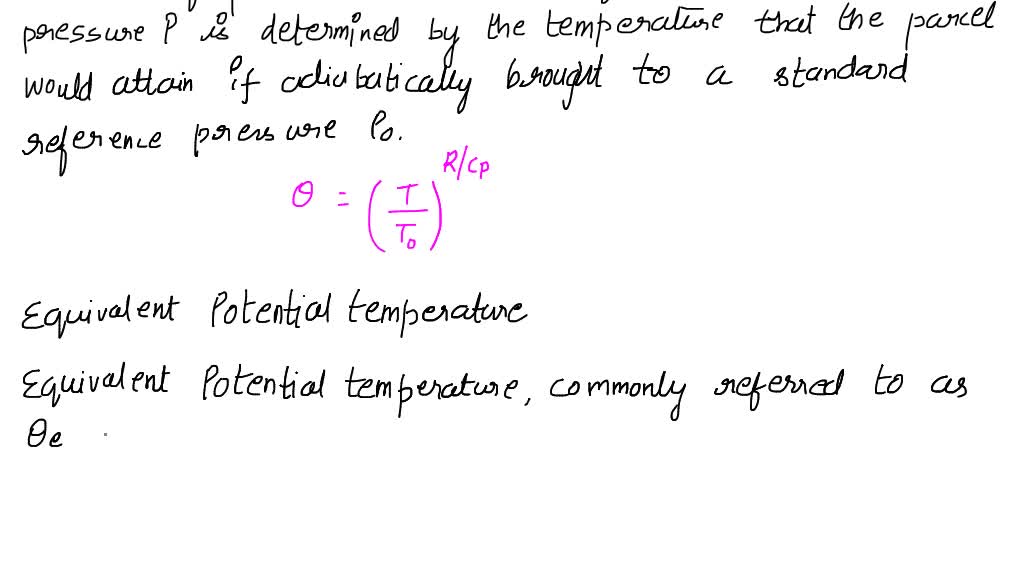 pressure P is determined by the temperature that the parcel
would attain if adiabatically brought to a standard
reference pressure P₀.
θ = (T/T₀)^R/Cp
Equivalent Potential temperature
Equivalent Potential temperature, commonly referred to as
θe